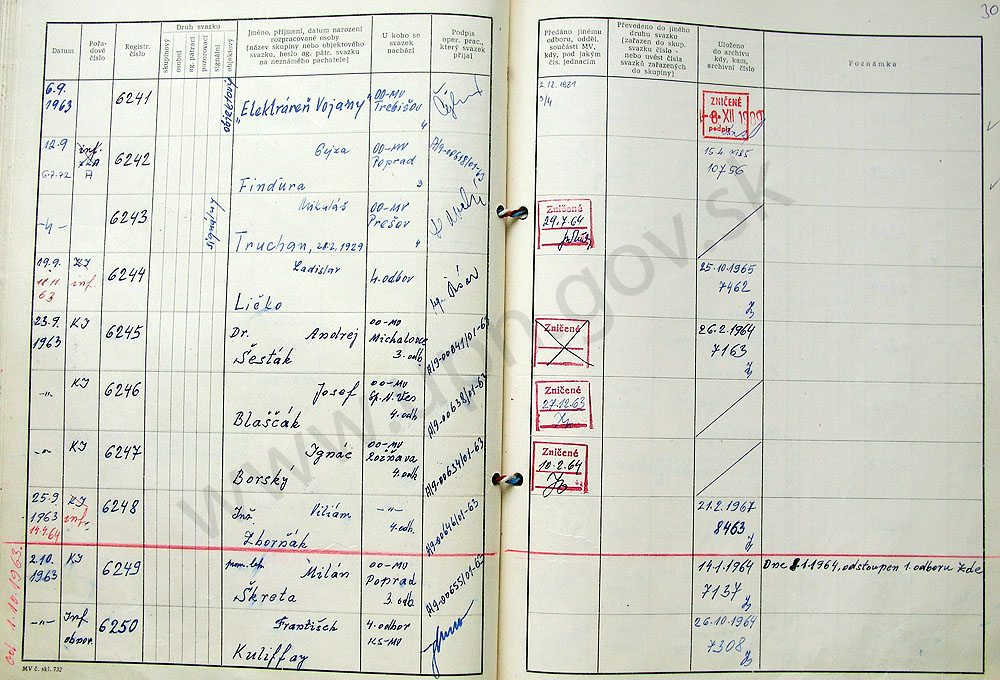 30
Datum
Pořadové číslo
Registr. číslo
Druh svazku
skupinový
osobní
ag. pátrací
pozorovací
signální
objektový
Jméno, příjmení, datum narození
rozpracované osoby
(název skupiny nebo objektového
svazku, heslo ag. pátr. svazku
na neznámého pachatele)
U koho se
svazek
nachází
Podpis
oper. prac.,
který svazek
přijal
Předáno jinému
odboru, odděl.
součásti MV,
kdy, pod jakým
čís. jednacím
Převedeno do jiného
druhu svazku
(zařazen do skup.
svazku číslo -
nebo uvést čísla
svazků zařazených
do skupiny)
Uloženo
do archivu
kdy, kam,
archivní číslo
Poznámka
6.9.
1963
6241
objektový
"Elektráreň Vojany"
OO-MV
Trebišov
4
2.12.1981
ZNIČENÉ
podpis
12.9
6.7.72
6242
Gejza
Finďura
OO-MV
Poprad
3
A/9-00618/01-63
15.4.1985
10756
-"-
6243
signálny
Mikuláš
Truchan, 28.2.1929
OO-MV
Prešov
4
Zničené
29.7.64
19.9.
63
KI
inf.
6244
Ladislav
Ličko
4. odbor
25.10.1965
7462
23.9.
1963
KI
6245
Dr. Andrej
Šesták
OO-MV
Michalovce
3. odb.
A/9-00641/01-63
Zničené
26.2.1964
7163
-"-
KI
6246
Josef
Blaščák
OO-MV
Sp. N. Ves
4. odb.
A/9-00638/01-63
Zničené
27.12.63
-"-
KI
6247
Ignác
Borský
OO-MV
Rožňava
4. odb.
A/9-00634/01-63
Zničené
10.2.64
25.9
1963
KI
inf.
6248
Inž. Viliam
Zborňák
-"-
4. odb.
A/9-00646/01-63
21.2.1967
8463
od 1.10.1963.
2.10.
1963
KI
6249
Milán
Škreta
OO-MV
Poprad
3. odb.
A/9-00655/01-63
14.1.1964
7137
Dne 8.1.1964, odstoupen 1. odboru zde
-"-
Inf.
6250
František
Kuliffay
4. odbor
KS-MV
26.10.1964
7308
MV č. skl. 732
www.upn.gov.sk